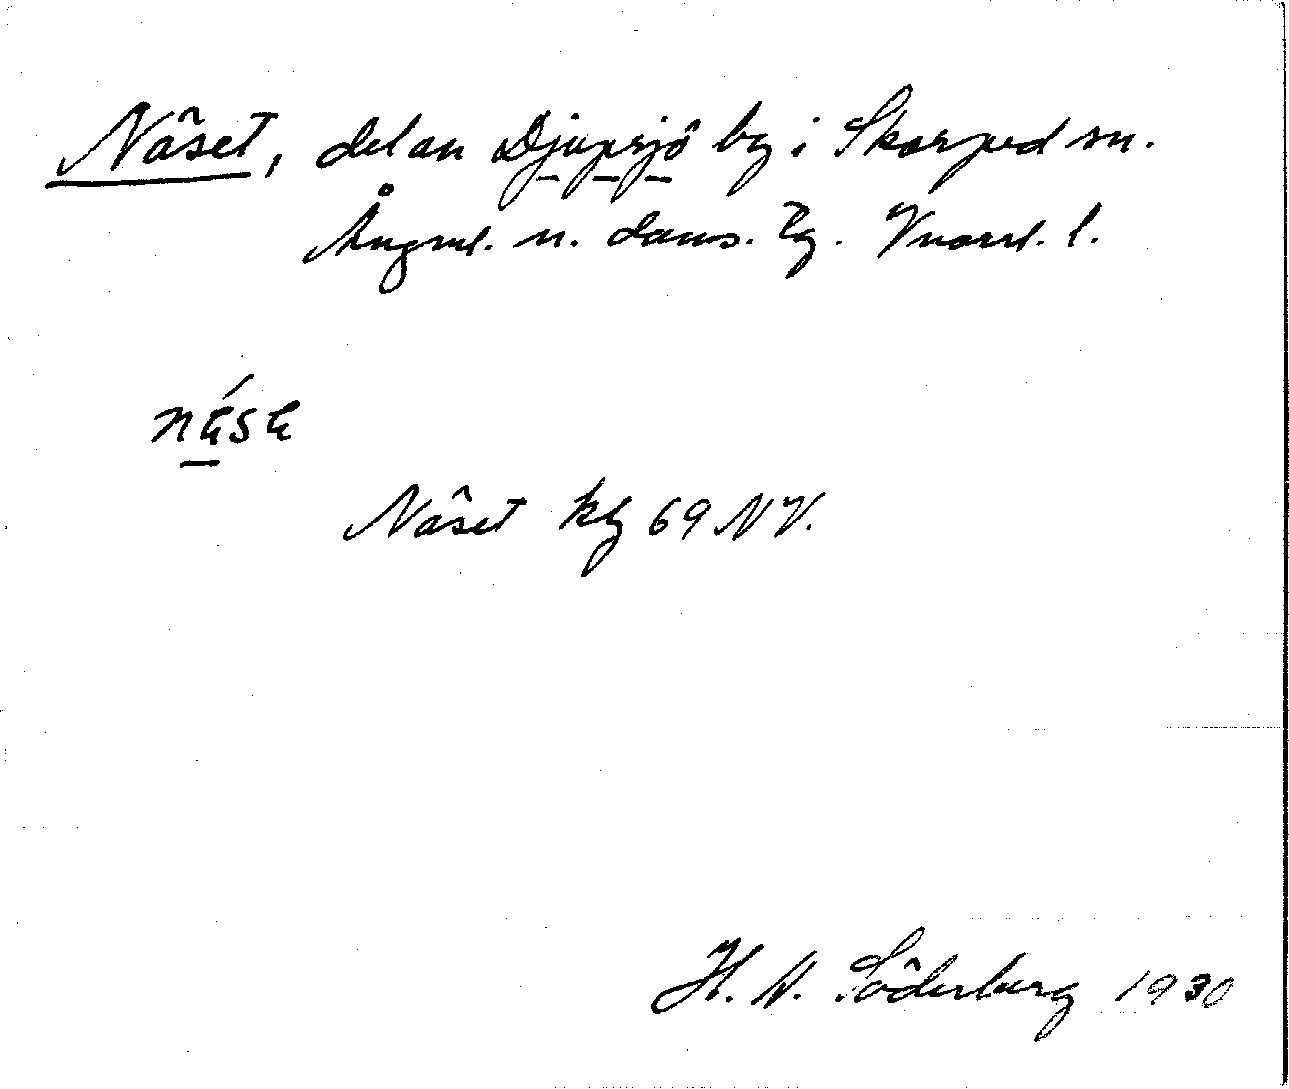 Näset, del av Djupsjö by i Skorped sn.
Ångml. n. doms. tg. Vnorrl. l.
Näset kbl 69 NV.
H. V. Söderberg 1930